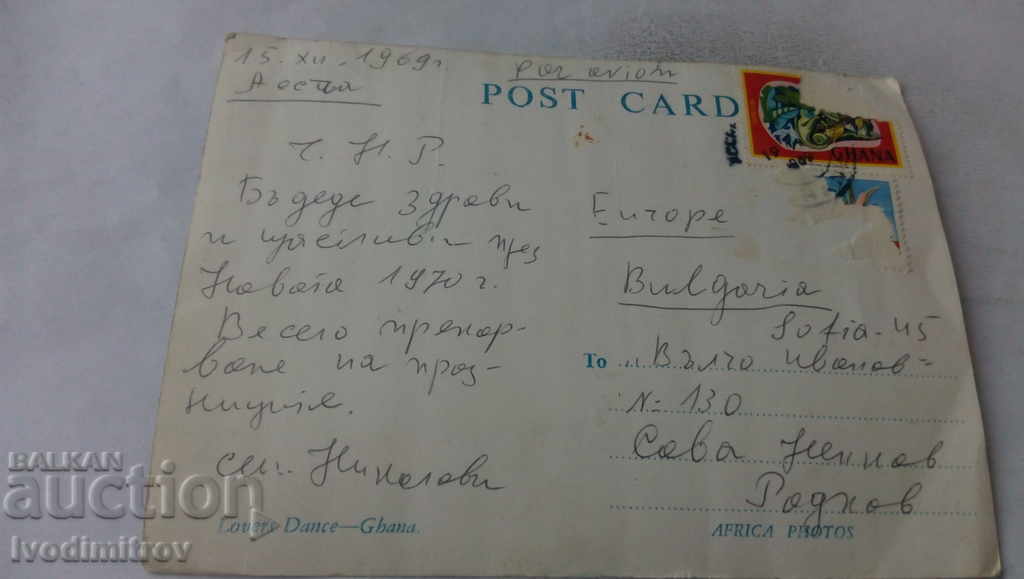 15. XII. 1969 г.
Par avion
POST CARD
GHANA
Ч. Н. Р.
Бъдеде здрави
и щастливи през
Новата 1970 г.
Весело прекар-
ване на праз-
ниците.
сем. Николови
Europe
Bulgaria
Sofia-45
To Вълчо Иванов-
№ 130
Сава Ненков
Радков
Lovers Dance—Ghana.
AFRICA PHOTOS
BALKAN
auction
Ivodimitrov